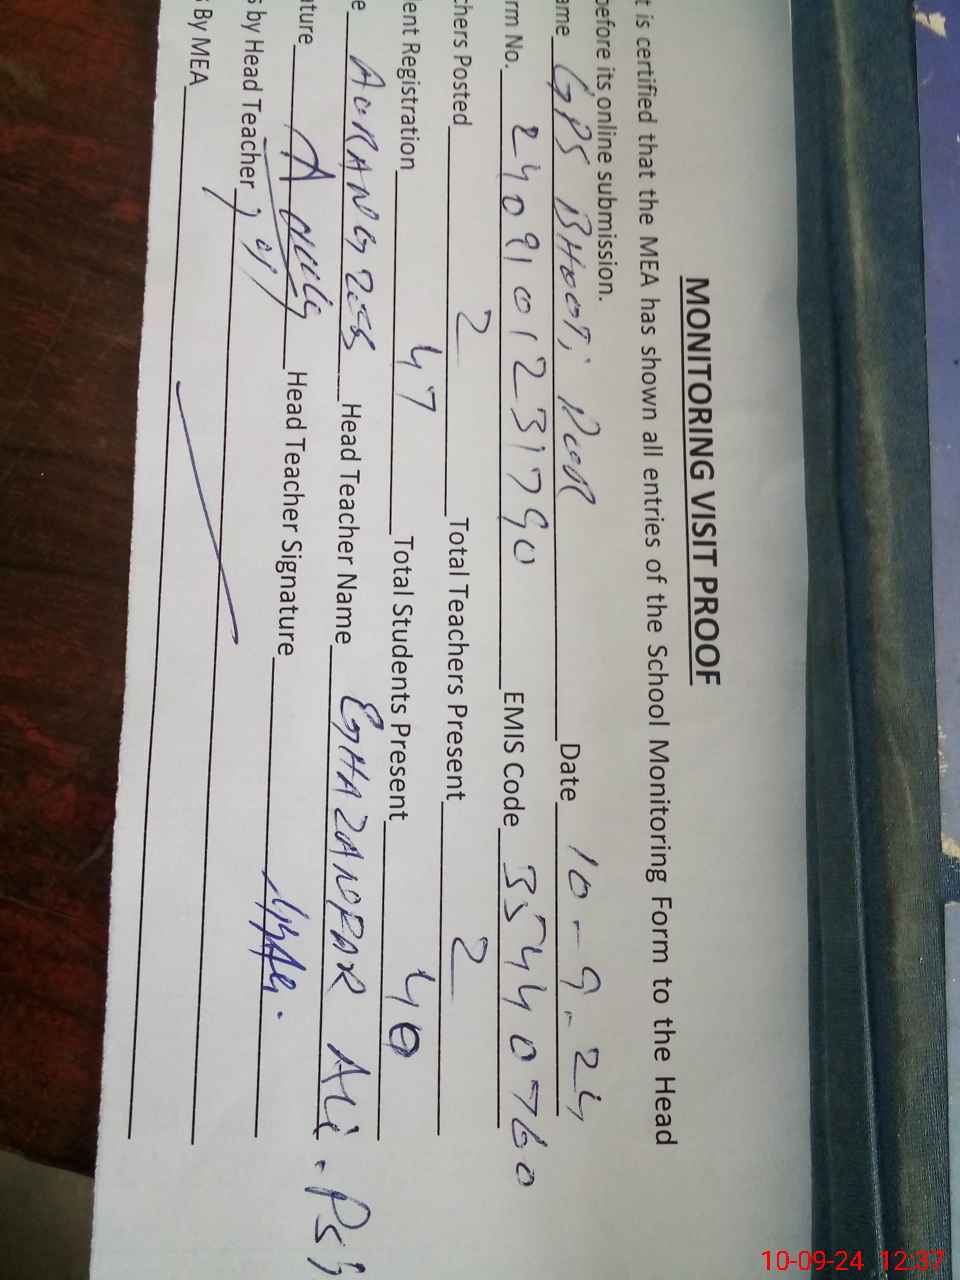 MONITORING VISIT PROOF
t is certified that the MEA has shown all entries of the School Monitoring Form to the Head
before its online submission.
ame GPS BHOOTi POOR Date 10-9-24
rm No. 2409101231790 EMIS Code 35440760
chers Posted 2 Total Teachers Present 2
ent Registration 47 Total Students Present 40
e AURANGZEB Head Teacher Name GHAZANFAR ALi. PST
ature Head Teacher Signature
s by Head Teacher
s By MEA
10-09-24 12:37